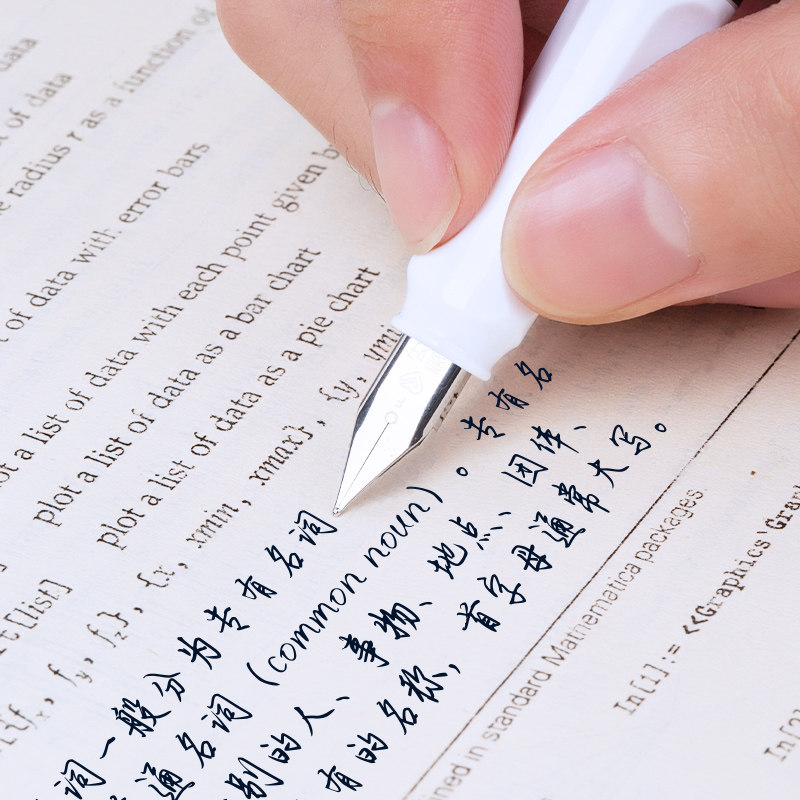 data
of data
radius r as a function of
of data with error bars
a list of data with each point given
plot a list of data as a bar chart
plot a list of data as a pie chart
{x, xmin, xmax}, {y, ymi
t[list]
{f_x, f_y, f_z},
词一般分为专有名词
通名词 (common noun)。专有名
别的人、事物、地点、团体、
有的名称,首字母通常大写。
ined in standard Mathematica packages
In[1]:= <<Graphics`Grap
In[2]